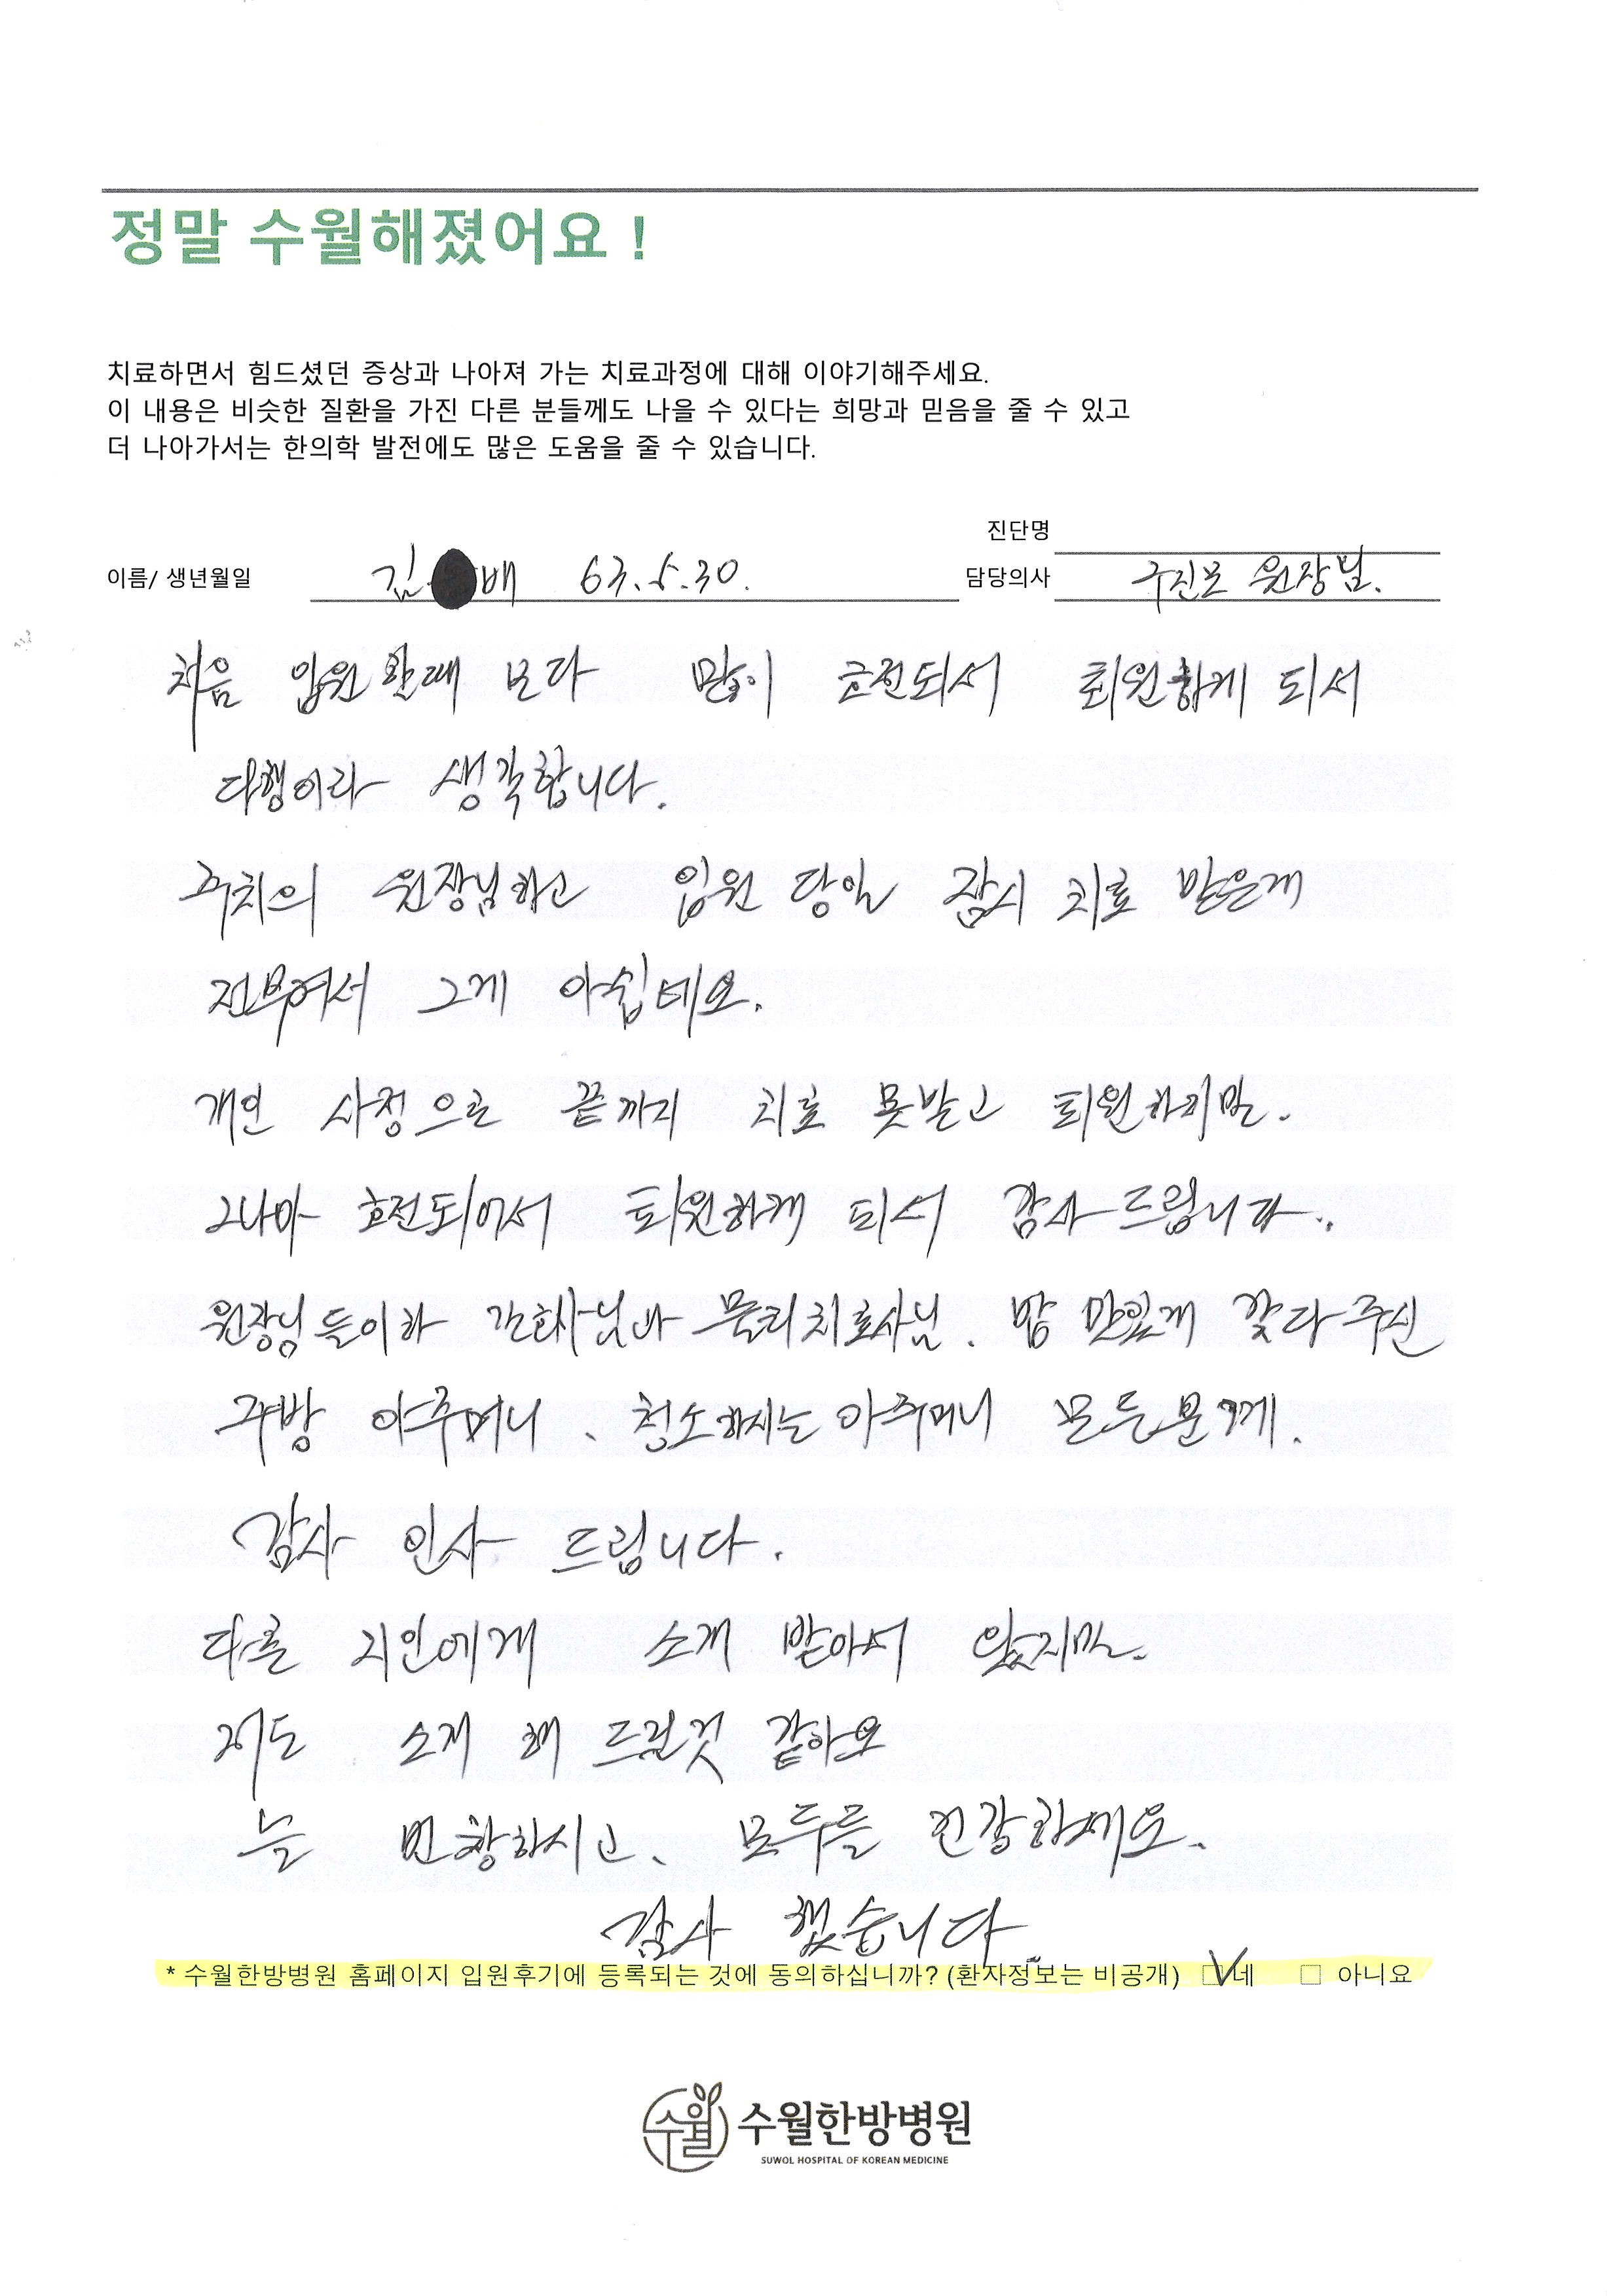 정말 수월해졌어요 !
치료하면서 힘드셨던 증상과 나아져 가는 치료과정에 대해 이야기해주세요.
이 내용은 비슷한 질환을 가진 다른 분들께도 나을 수 있다는 희망과 믿음을 줄 수 있고
더 나아가서는 한의학 발전에도 많은 도움을 줄 수 있습니다.
진단명
이름/ 생년월일 김 배 63.5.30. 담당의사 구진모 원장님.
처음 입원할때 보다 많이 호전되서 퇴원하게 되서
다행이라 생각합니다.
주치의 원장님하고 입원 당일 잠시 치료 받은게
전부여서 그게 아쉽네요.
개인 사정으로 끝까지 치료 못받고 퇴원하지만.
그나마 호전되어서 퇴원하게 되서 감사드립니다..
원장님들이하 간호사님과 물리치료사님. 밥 맛있게 갖다주신
주방 아주머니、청소하시는 아주머니 모든분께.
감사 인사 드립니다.
다른 지인에게 소개 받아서 왔지만.
저도 소개 해 드릴것 같아요
늘 번창하시고、모두들 건강하세요.
감사 했습니다
* 수월한방병원 홈페이지 입원후기에 등록되는 것에 동의하십니까? (환자정보는 비공개) ☑네 □ 아니요
수월 수월한방병원
SUWOL HOSPITAL OF KOREAN MEDICINE